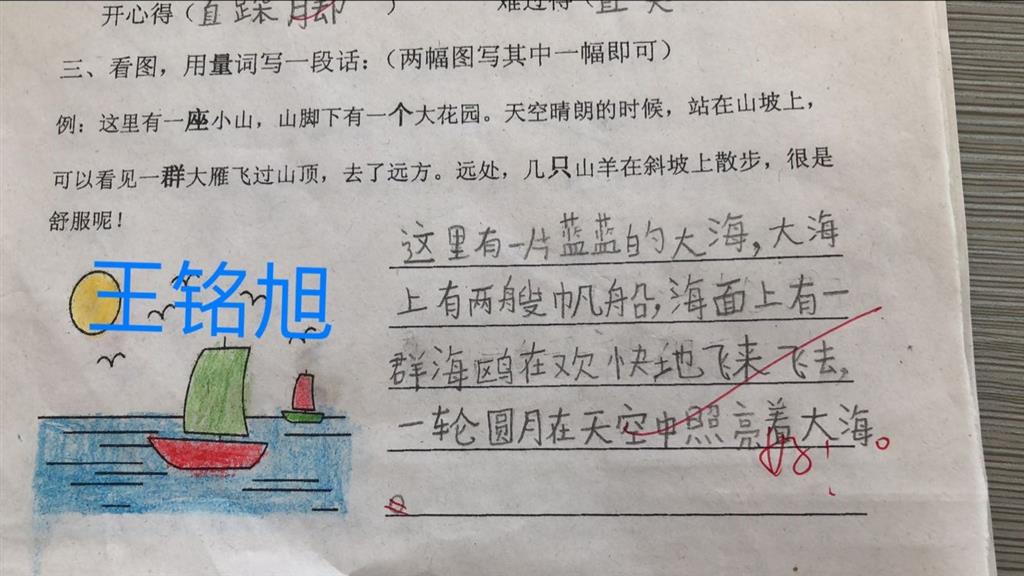 开心得（直跺脚） 难过得（直哭
三、看图，用量词写一段话：（两幅图写其中一幅即可）
例：这里有一座小山，山脚下有一个大花园。天空晴朗的时候，站在山坡上，
可以看见一群大雁飞过山顶，去了远方。远处，几只山羊在斜坡上散步，很是
舒服呢！
王铭旭
这里有一片蓝蓝的大海，大海
上有两艘帆船，海面上有一
群海鸥在欢快地飞来飞去，
一轮圆月在天空中照亮着大海。
好！